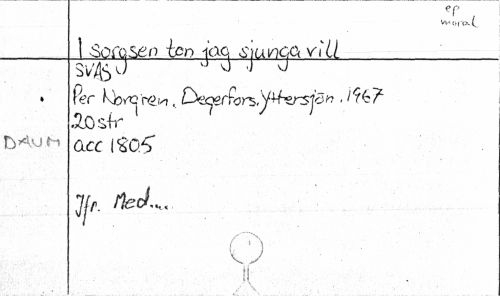 ep
moral
I sorgsen ton jag sjunga vill
SVAS
Per Norgren. Degerfors. Yttersjön. 1967
20 str
DAUM acc 1805
Jfr. Med....